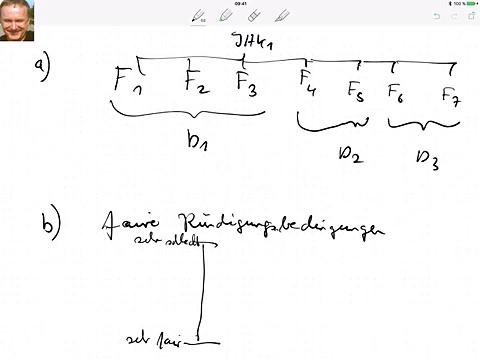 09:41
100 %
JAK1
a)
F1 F2 F3 F4 F5 F6 F7
D1 D2 D3
b) faire Kündigungsbedingungen
sehr schlecht
sehr fair